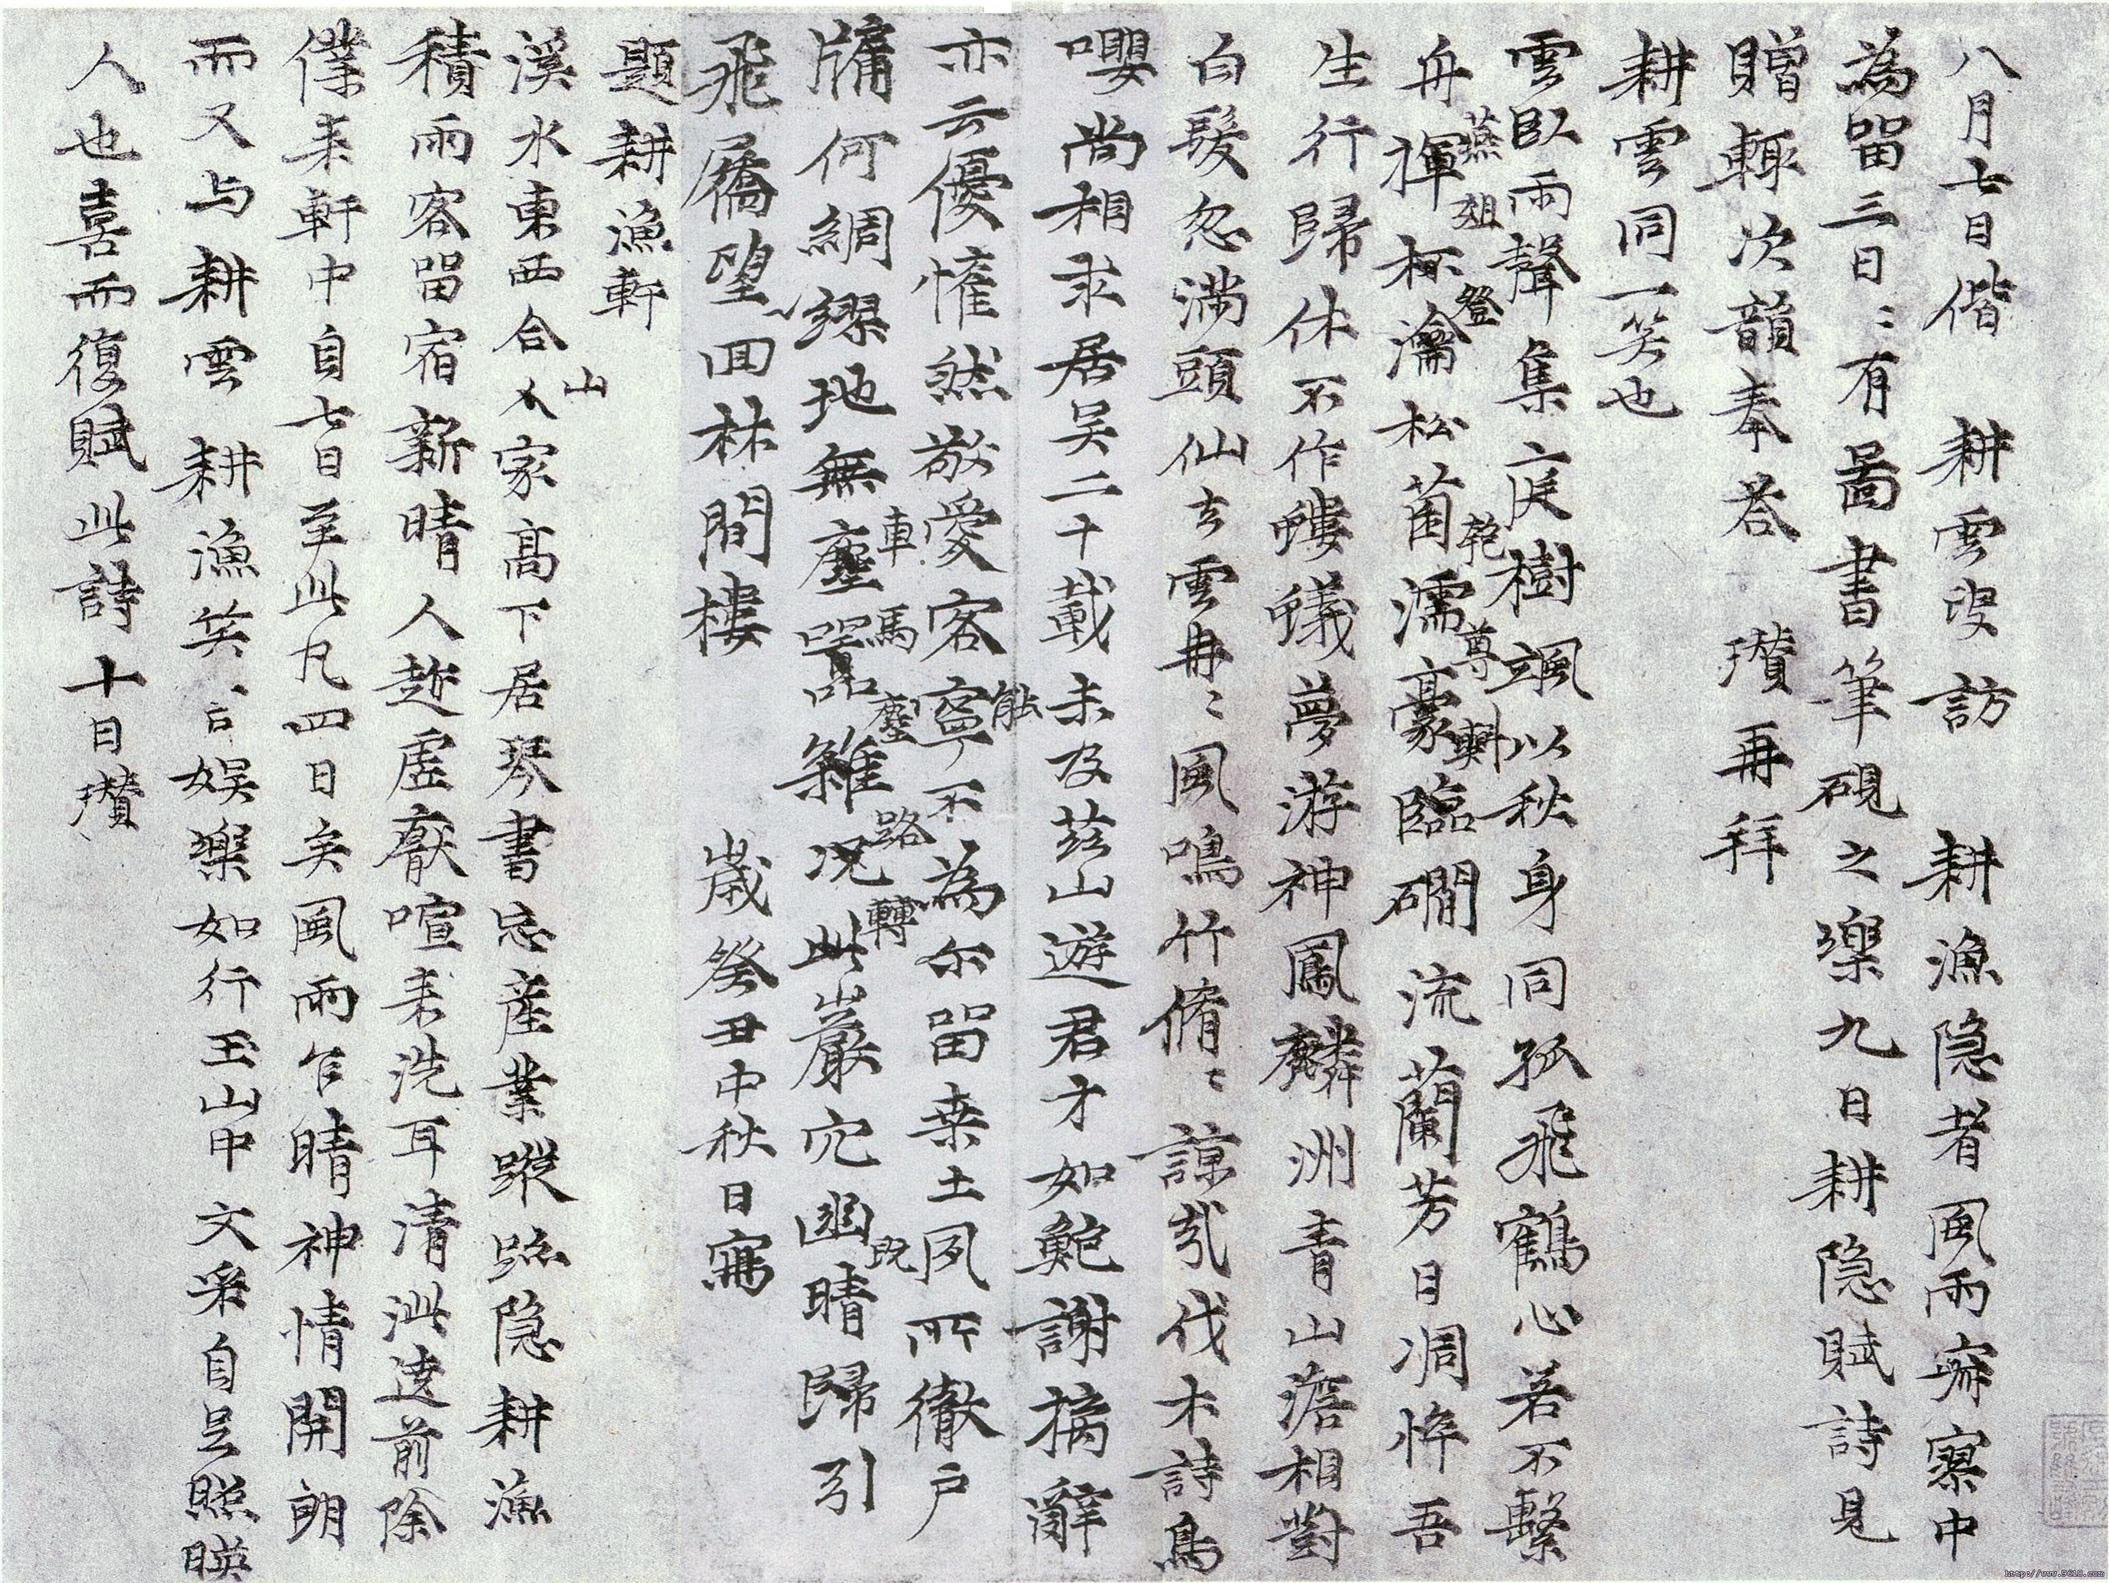 八月七日偕 耕雲叟訪 耕漁隐者風雨寂寥中
為留三日〻有啚書筆硯之樂九日耕隐賦詩見
贈輙次韻奉荅 瓉再拜
耕雲同一笑也
雲臥雨聲集庭樹颯以秋身同孤飛鶴心若不繫
舟揮杯瀹松菌濡豪臨磵流蘭芳日凋悴吾
燕俎登乾尊斟
生行歸休不作螻蟻夢游神鳳麟洲青山澹相對
白髮忽滿頭仙去雲冉〻風鳴竹脩〻諒哉伐木詩鳥
嚶尚相求居吴二十載未及茲山遊君才如鮑謝摛辭
亦云優惟然敬愛客寧不為尓留桒土夙所徹户
能
牖何綢繆地無塵嚣雜况此巖穴幽晴歸引
車馬塵路轉既
飛屩望回林間樓 歲癸丑中秋日寫
題耕漁軒
溪水東西合人家高下居琴書忘產業蹤跡隐耕漁
山
積雨客留宿新晴人趂虛厭喧来洗耳清泚遶前除
僕来軒中自七日至此凡四日矣風雨乍晴神情開朗
而又与耕雲 耕漁笑〻言娱樂如行玉山中文采自足照暎
人也喜而復賦此詩十日瓚
http://www.9610.com